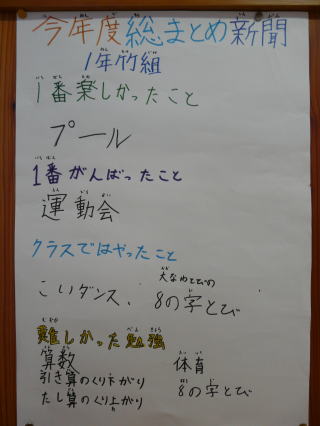 今年度総まとめ新聞
1年竹組
1番楽しかったこと
プール
1番がんばったこと
運動会
クラスではやったこと
大なわとびの
こいダンス、8の字とび
難しかった勉強
算数 体育
引き算のくり下がり 8の字とび
たし算のくり上がり